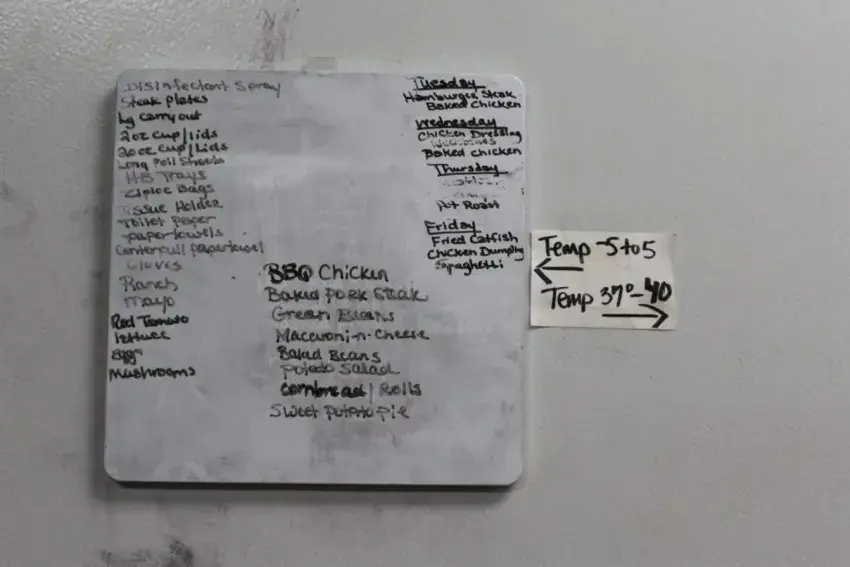 Disinfectant Spray
Steak plates
Lg carry out
2oz cup/lids
20oz cup/Lids
Long Roll Sheets
HB Trays
Ziploc Bags
Tissue Holder
Toilet Paper
paper towels
Centerpull papertowel
Gloves
Ranch
Mayo
Red Tomato
lettuce
eggs
Mushrooms
BBQ Chicken
Baked Pork Steak
Green Beans
Maccaroni-n-Cheese
Baked Beans
Potato Salad
Cornbread / Rolls
Sweet Potato Pie
Tuesday
Hamburger Steak
Baked Chicken
Wednesday
Chicken Dressing
Baked Chicken
Thursday
Pot Roast
Friday
Fried Catfish
Chicken Dumplng
Spaghetti
Temp -5 to 5
Temp 37°-40